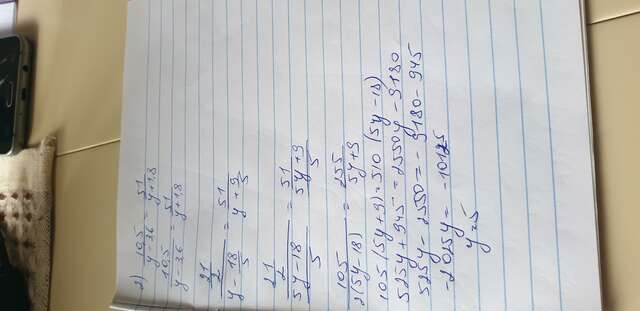 2) 10,5/y-3,6 = 5,1/y+1,8
10,5/y-3,6 = 5,1/y+1,8
21/2/y-18/5 = 51/y+9/5
21/2/5y-18/5 = 51/5y+9/5
105/2(5y-18) = 255/5y+9
105(5y+9)=510(5y-18)
525y+945=2550y-9180
525y-2550=-9180-945
-2025y=-10125
y=5